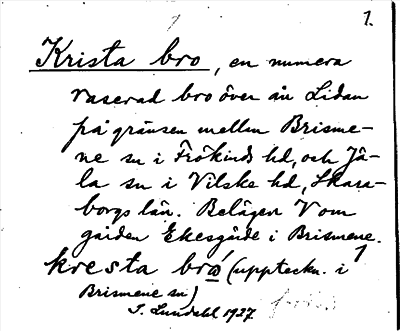 1.
Krista bro, en numera
raserad bro över ån Lidan
på gränsen mellan Brisme-
ne sn i Frökinds hd, och Jä-
la sn i Vilske hd, Skara-
borgs län. Belägen V om
gården Ekesgärde i Brismene.
kresta bro (uppteckn. i
Brismene sn)
S. Lundahl 1927.